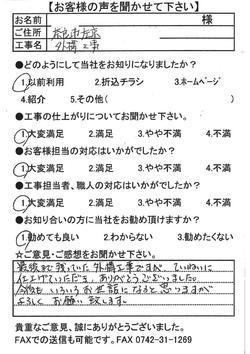 【お客様の声を聞かせて下さい】
お名前 様
ご住所 奈良市左京
工事名 外構工事
●どのようにして当社をお知りになりましたか?
1.以前利用 2.折込チラシ 3.ホームページ
4.紹介 5.その他( )
●工事の仕上がりについてお聞かせ下さい。
1.大変満足 2.満足 3.やや不満 4.不満
●お客様担当の対応はいかがでしたか?
1.大変満足 2.満足 3.やや不満 4.不満
●工事担当者、職人の対応はいかがでしたか?
1.大変満足 2.満足 3.やや不満 4.不満
●お知り合いの方に当社をお勧め頂けますか?
1.勧めても良い 2.わからない 3.勧めたくない
☆ご意見・ご感想をお聞かせ下さい。
最後まで残っていた外構工事ですが、ていねいに
仕上げていただき、ありがとうございました。
今後もいろいろお世話になると思いますが
よろしくお願い致します。
貴重なご意見、誠にありがとうございました。
FAXでの送信も可能です。FAX 0742-31-1269